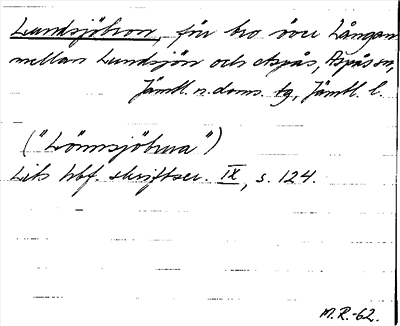 Lundsjöbron, för bro över Långan
mellan Lundsjön och Aspås, Aspås sn,
Jämtl. n. doms. tg, Jämtl. l.
("Lönnsjöbrua")
Lits hbf. skriftser. IX, s. 124.
M.R.-62.